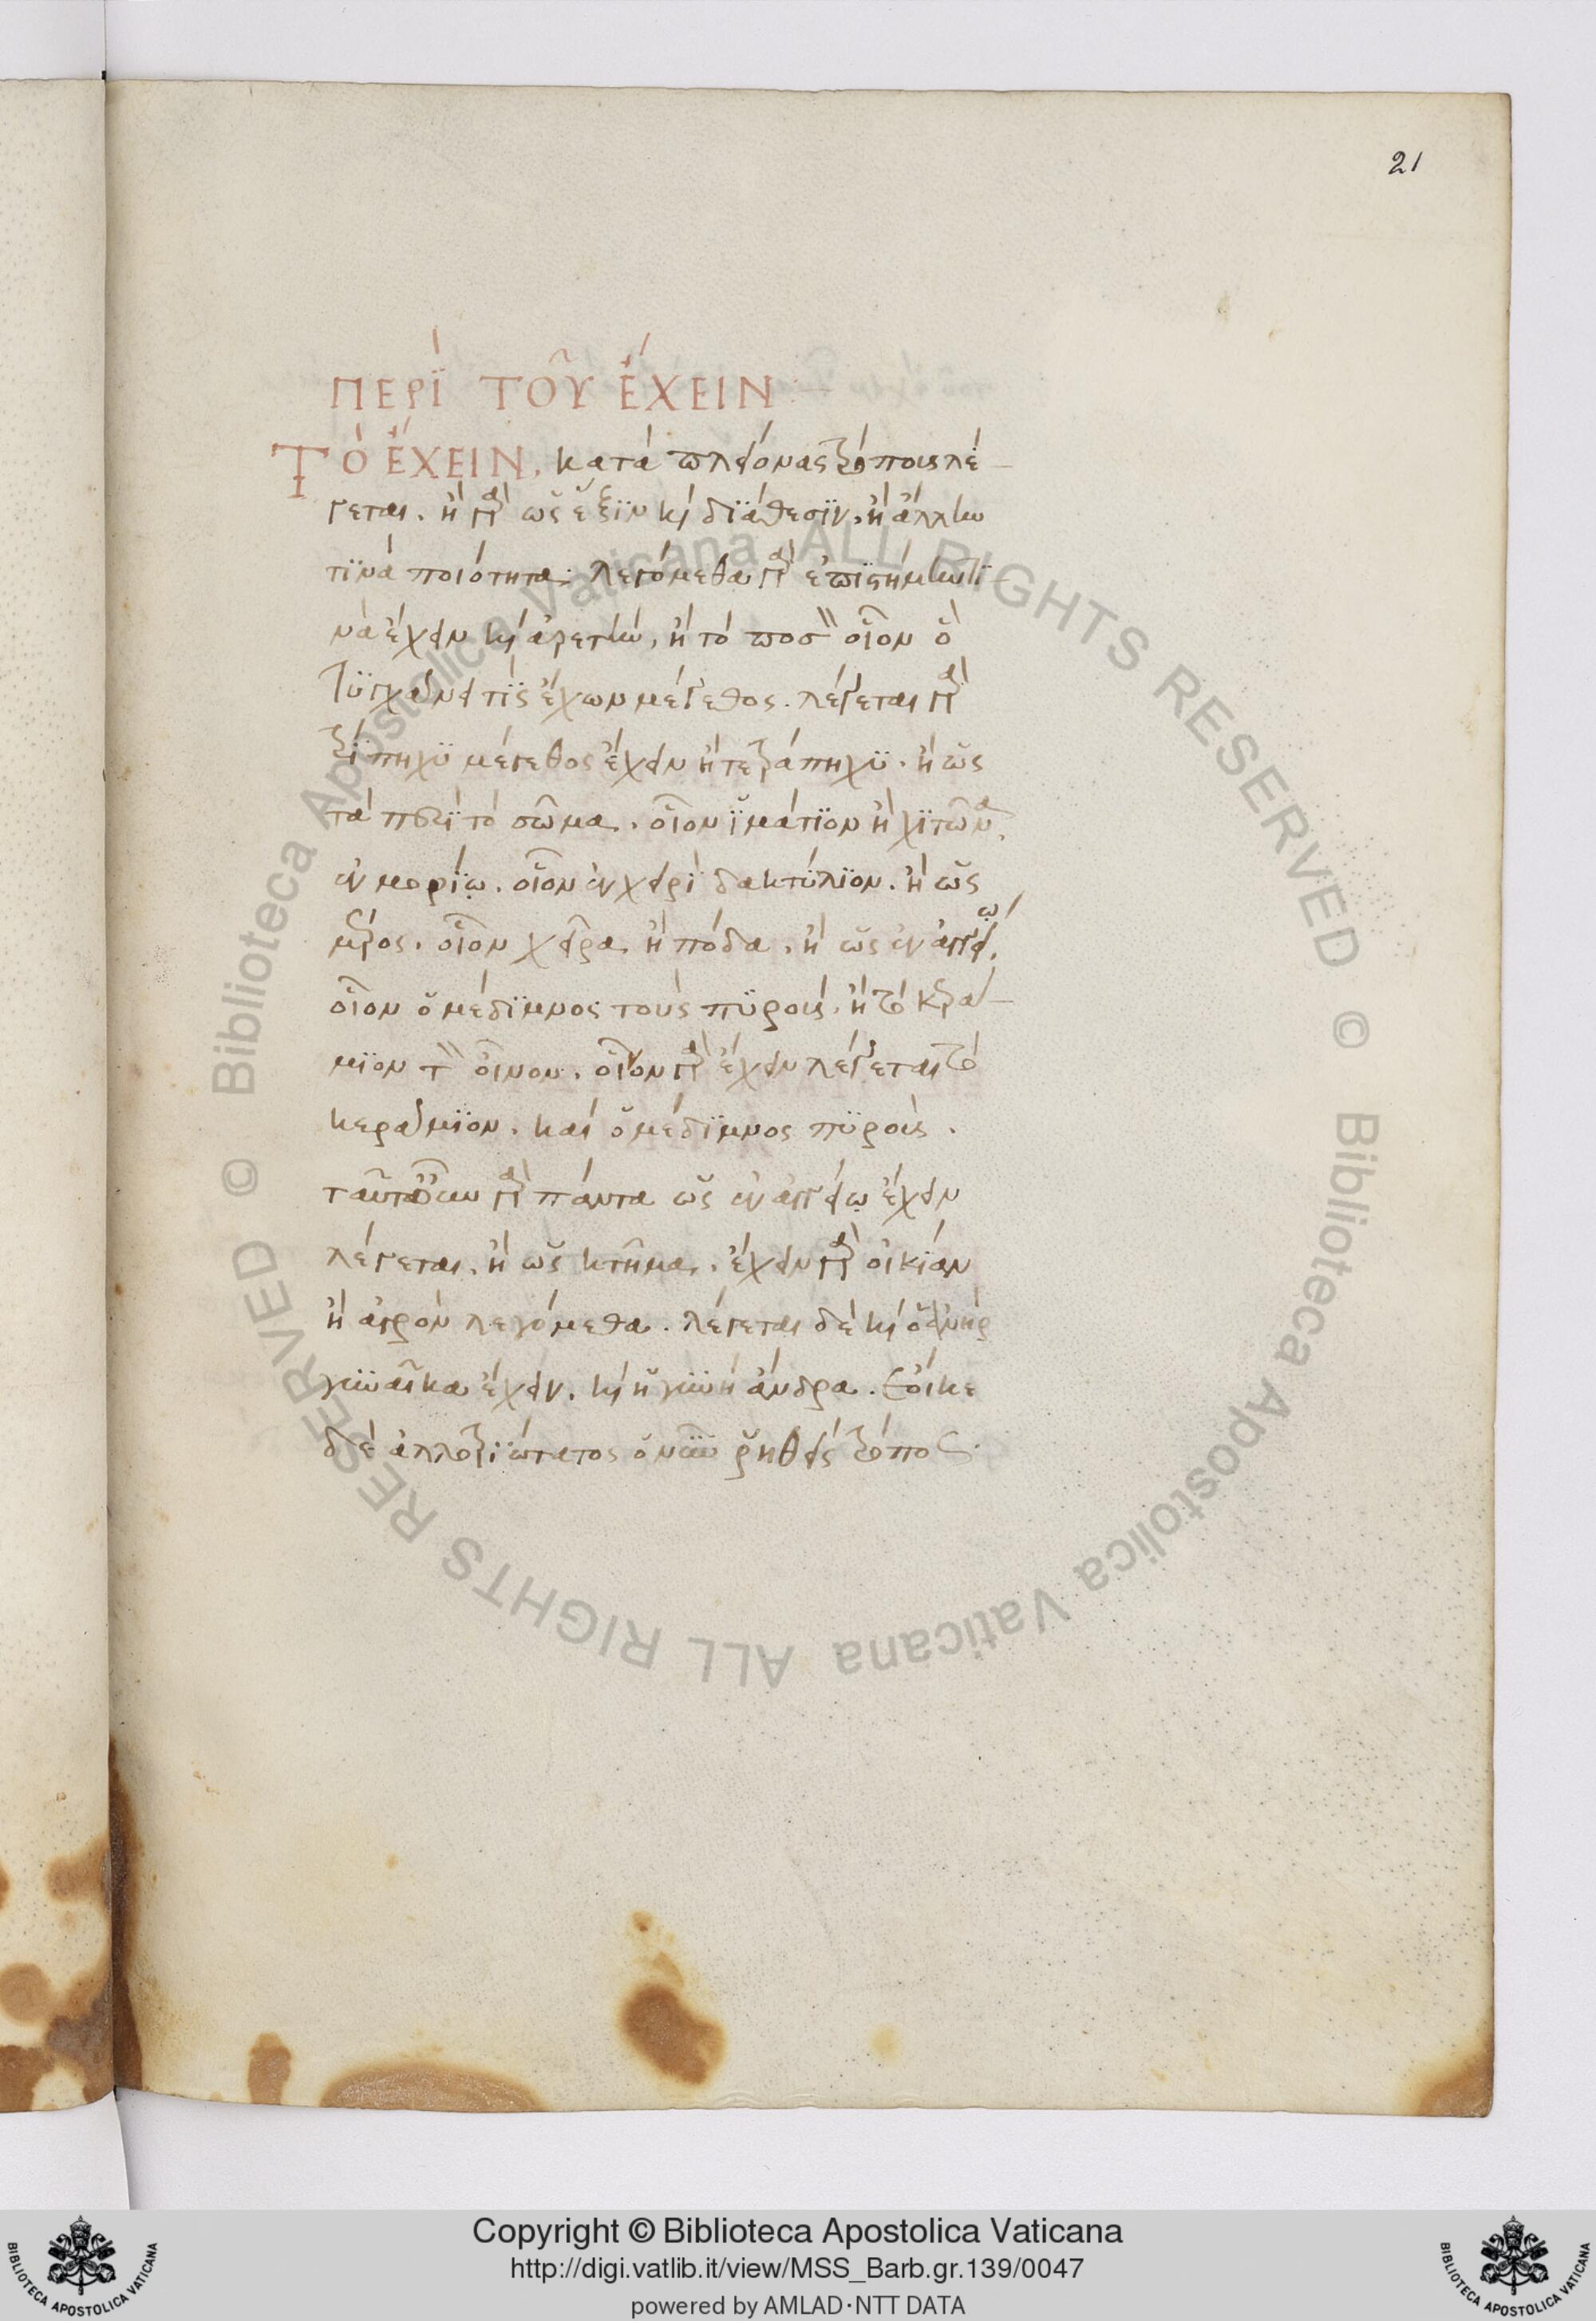 21
ΠΕΡῚ ΤΟῦ ἜΧΕΙΝ
ΤῸ ἜΧΕΙΝ, κατὰ πλείονας τρόπους λέ-
γεται. ἢ γὰρ ὡς ἕξϊν καὶ διάθεσϊν, ἢ ἄλλην
τϊνὰ ποιότητα. λεγόμεθα γὰρ ἐπϊστήμην τϊ
νὰ ἔχειν καὶ ἀρετήν, ἢ τὸ ποσὸν οἷον ὃ
τϋγχάνει τῒς ἔχων μέγεθος. λέγεται γὰρ
τρίπηχϋ μέγεθος ἔχειν ἢ τετράπηχϋ. ἢ ὡς
τὰ περὶ τὸ σῶμα. οἷον ἱμάτϊον ἢ χϊτῶνα.
ἐν μορίῳ. οἷον ἐν χειρῒ δακτύλϊον. ἢ ὡς
μέρος. οἷον χεῖρα ἢ πόδα. ἢ ὡς ἐν ἀγγείῳ.
οἷον ὁ μέδϊμνος τοὺς πϋρούς. ἢ τὸ κερά-
μϊον τὸν οἶνον. οἶνον γὰρ ἔχειν λέγεται τὸ
κεράμϊον. καὶ ὁ μέδϊμνος πϋρούς.
ταῦτα οὖν γὰρ πάντα ὡς ἐν ἀγγείῳ ἔχειν
λέγεται. ἢ ὡς κτῆμα. ἔχειν γὰρ οἰκίαν
ἢ ἀγρὸν λεγόμεθα. λέγεται δὲ καὶ ὁ ἀνὴρ
γϋναῖκα ἔχειν. καὶ ἡ γϋνὴ ἄνδρα. ἔοικε
δὲ ἀλλοτριώτατος ὁ νῦν ῥηθεὶς τρόπος.
Copyright © Biblioteca Apostolica Vaticana
http://digi.vatlib.it/view/MSS_Barb.gr.139/0047
powered by AMLAD·NTT DATA
BIBLIOTECA APOSTOLICA VATICANA
BIBLIOTECA APOSTOLICA VATICANA
© Biblioteca Apostolica Vaticana ALL RIGHTS RESERVED
© Biblioteca Apostolica Vaticana ALL RIGHTS RESERVED